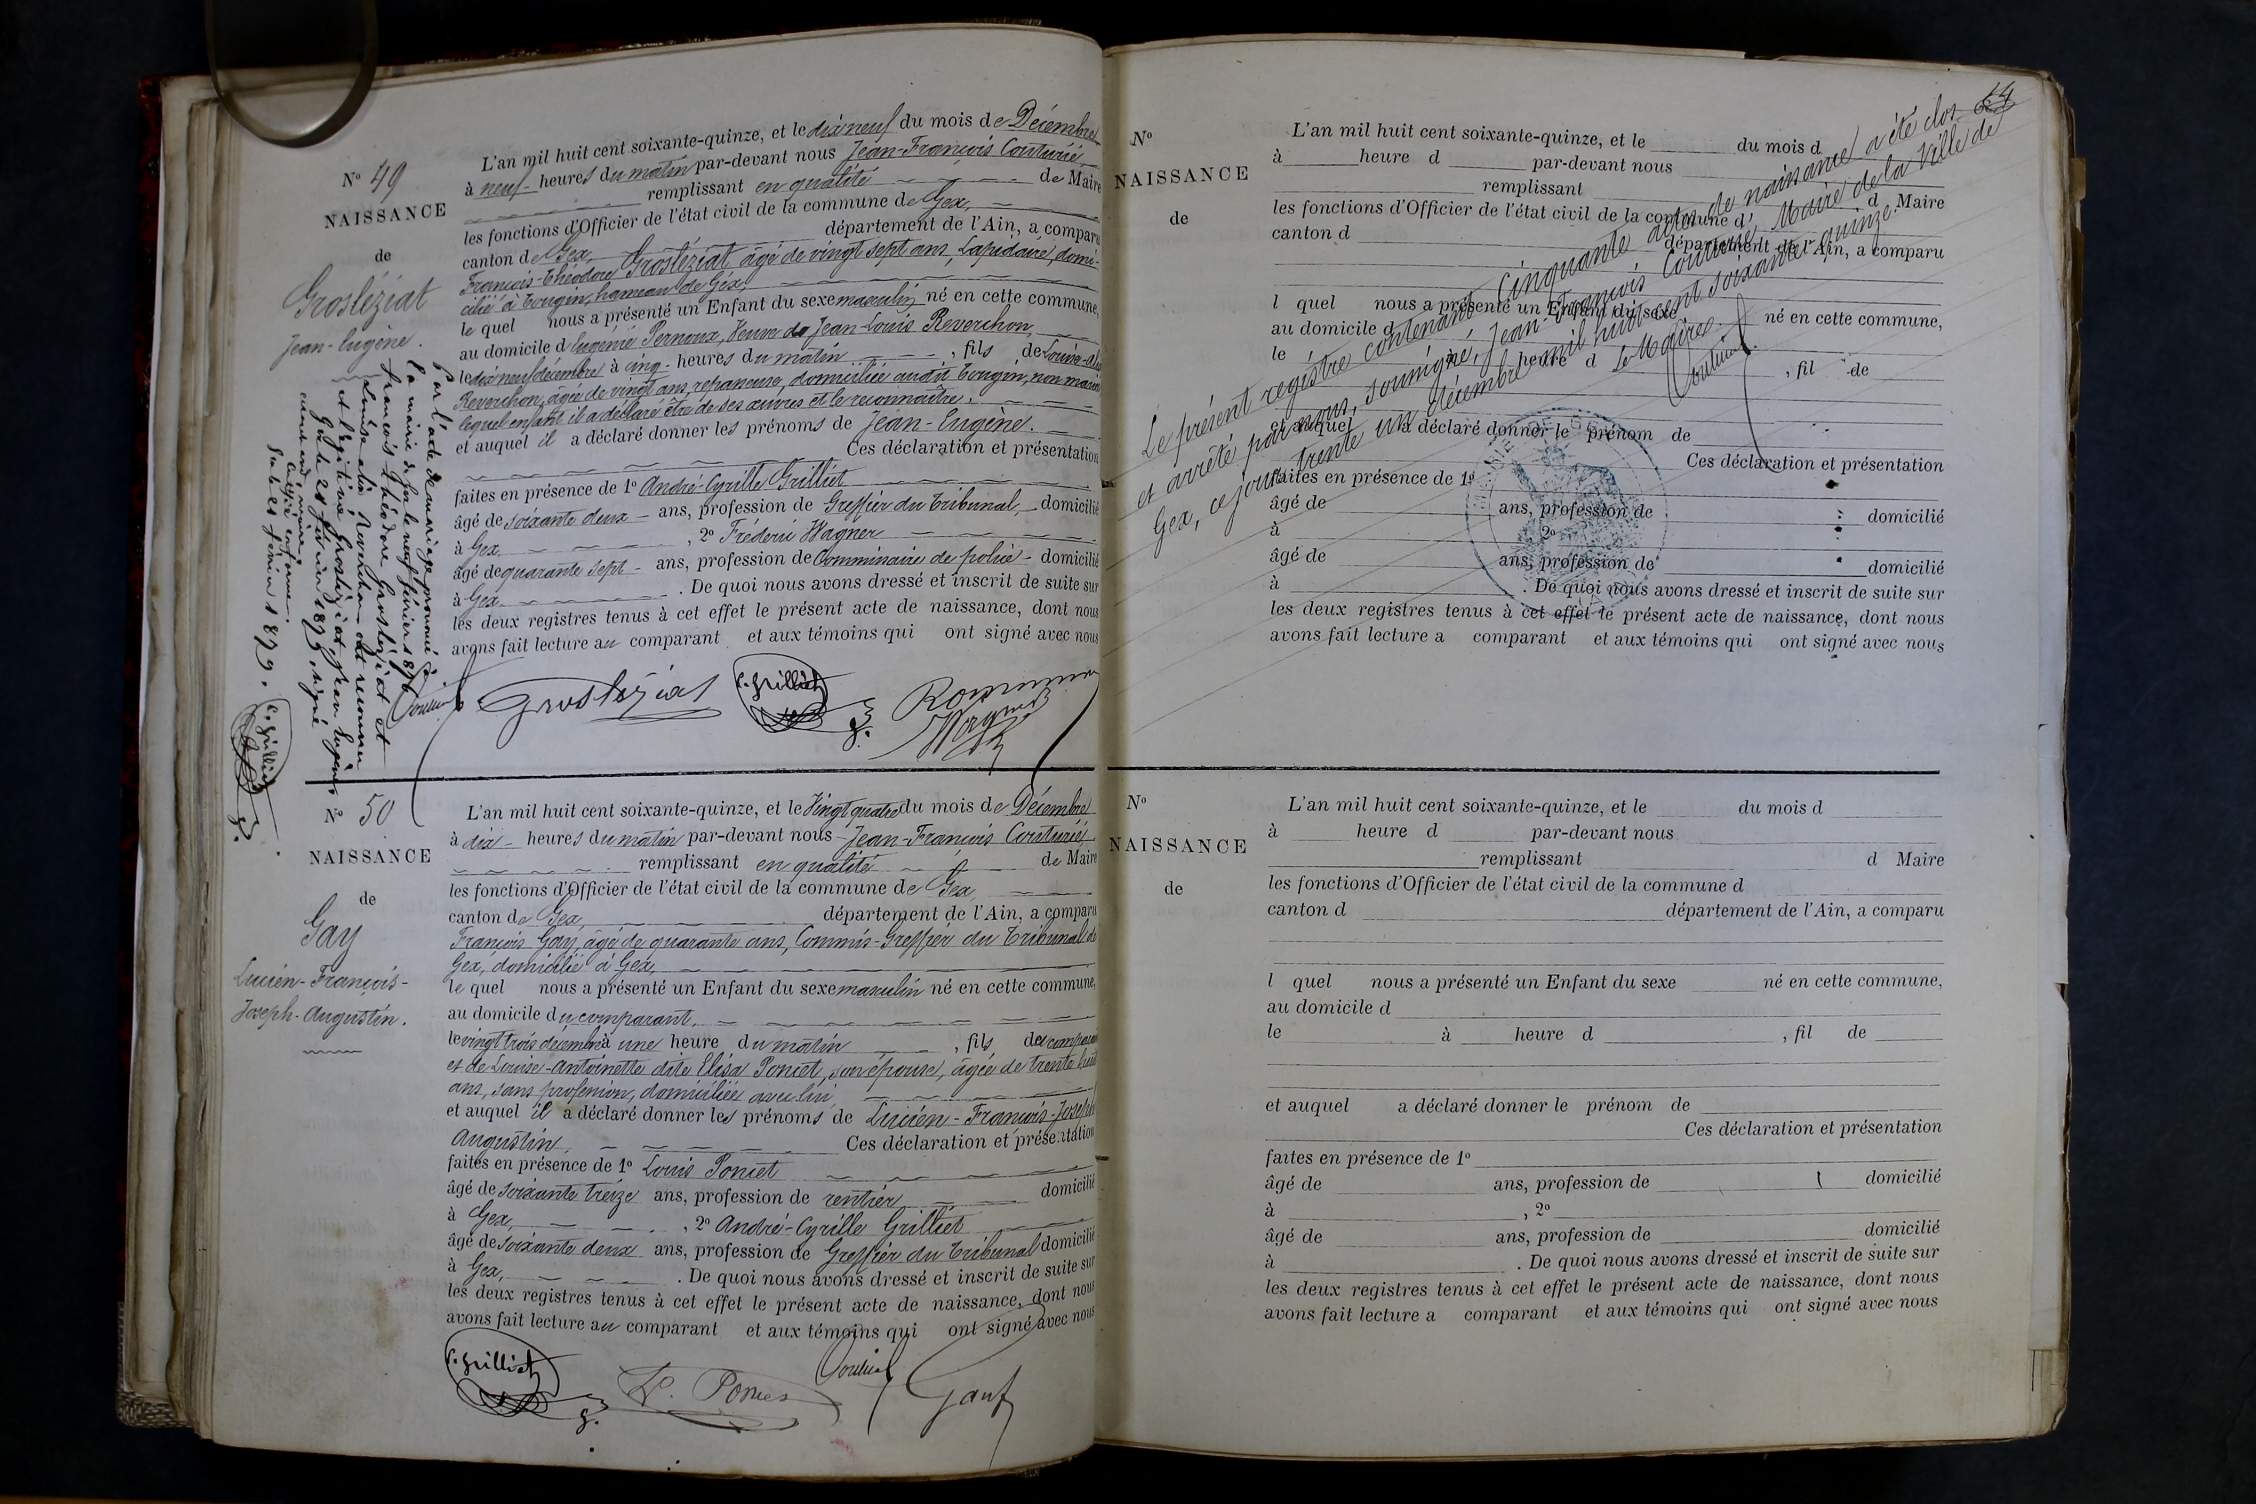 N° 49
NAISSANCE
de
Grosléziat
Jean-Eugène.
L'an mil huit cent soixante-quinze, et le dix neuf du mois de Décembre
à neuf heures du matin par-devant nous Jean-François Couturié
remplissant en qualité de Maire
les fonctions d'Officier de l'état civil de la commune de Gex,
canton de Gex, département de l'Ain, a comparu
François-Théodore Grosléziat âgé de vingt sept ans, Lapidaire, domi-
cilié à Tougin, hameau de Gex,
le quel nous a présenté un Enfant du sexe masculin né en cette commune,
au domicile d'Eugénie Pernoux, Veuve de Jean-Louis Reverchon,
le dix neuf décembre à cinq heures du matin, fils de Louise-
Reverchon, âgée de vingt ans, repasseuse, domiciliée audit Tougin, non mariée
lequel enfant il a déclaré être de ses œuvres et le reconnaître.
et auquel il a déclaré donner les prénoms de Jean-Eugène.
Ces déclaration et présentation
faites en présence de 1° André-Cyrille Grilliet
âgé de soixante deux ans, profession de Greffier du Tribunal, domicilié
à Gex, 2° Fréderic Wagner
âgé de quarante sept ans, profession de Commissaire de police - domicilié
à Gex. De quoi nous avons dressé et inscrit de suite sur
les deux registres tenus à cet effet le présent acte de naissance, dont nous
avons fait lecture au comparant et aux témoins qui ont signé avec nous
Par l'acte de mariage prononcé à
la mairie de Gex le neuf février 1876
François Théodore Grosléziat et
Louise Reverchon ont reconnu
et légitimé Grosléziat Jean Eugène
Gex le 21 février 1879 signé
Gex le 21 février 1879.
C. Grilliet
Couturié
Grosléziat
C. Grilliet
Wagner
N° 50
NAISSANCE
de
Gay
Lucien-François-
Joseph-Augustin.
L'an mil huit cent soixante-quinze, et le Vingt quatre du mois de Décembre
à dix heures du matin par-devant nous Jean-François Couturié,
remplissant en qualité de Maire
les fonctions d'Officier de l'état civil de la commune de Gex,
canton de Gex, département de l'Ain, a comparu
François Gay, âgé de quarante ans, Commis-Greffier du Tribunal de
Gex, domicilié à Gex,
le quel nous a présenté un Enfant du sexe masculin né en cette commune,
au domicile du comparant,
le vingt trois décembre à une heure du matin, fils de comparant
et de Louise-Antoinette dite Elisa Poncet, son épouse, âgée de trente huit
ans, sans profession, domiciliée avec lui,
et auquel il a déclaré donner les prénoms de Lucien-François-Joseph
Augustin, Ces déclaration et présentation
faites en présence de 1° Louis Poncet
âgé de soixante treize ans, profession de rentier domicilié
à Gex, 2° André-Cyrille Grilliet
âgé de soixante deux ans, profession de Greffier du Tribunal domicilié
à Gex, . De quoi nous avons dressé et inscrit de suite sur
les deux registres tenus à cet effet le présent acte de naissance, dont nous
avons fait lecture au comparant et aux témoins qui ont signé avec nous
C. Grilliet
L. Poncet
Couturié
Gay f
14
N°
NAISSANCE
de
L'an mil huit cent soixante-quinze, et le du mois d
à heure d par-devant nous
remplissant d Maire
les fonctions d'Officier de l'état civil de la commune d
canton d département de l'Ain, a comparu
l quel nous a présenté un Enfant du sexe né en cette commune,
au domicile d
le à heure d , fil de
et auquel a déclaré donner le prénom de
Ces déclaration et présentation
faites en présence de 1°
âgé de ans, profession de domicilié
à 2°
âgé de ans, profession de domicilié
à . De quoi nous avons dressé et inscrit de suite sur
les deux registres tenus à cet effet le présent acte de naissance, dont nous
avons fait lecture a comparant et aux témoins qui ont signé avec nous
Le présent registre contenant cinquante actes de naissance a été clos
et arrêté par nous, soussigné, Jean-François Couturié, Maire de la Ville de
Gex, ce jour trente un décembre mil huit cent soixante quinze.
Le Maire
Couturié
N°
NAISSANCE
de
L'an mil huit cent soixante-quinze, et le du mois d
à heure d par-devant nous
remplissant d Maire
les fonctions d'Officier de l'état civil de la commune d
canton d département de l'Ain, a comparu
l quel nous a présenté un Enfant du sexe né en cette commune,
au domicile d
le à heure d , fil de
et auquel a déclaré donner le prénom de
Ces déclaration et présentation
faites en présence de 1°
âgé de ans, profession de domicilié
à , 2°
âgé de ans, profession de domicilié
à . De quoi nous avons dressé et inscrit de suite sur
les deux registres tenus à cet effet le présent acte de naissance, dont nous
avons fait lecture a comparant et aux témoins qui ont signé avec nous